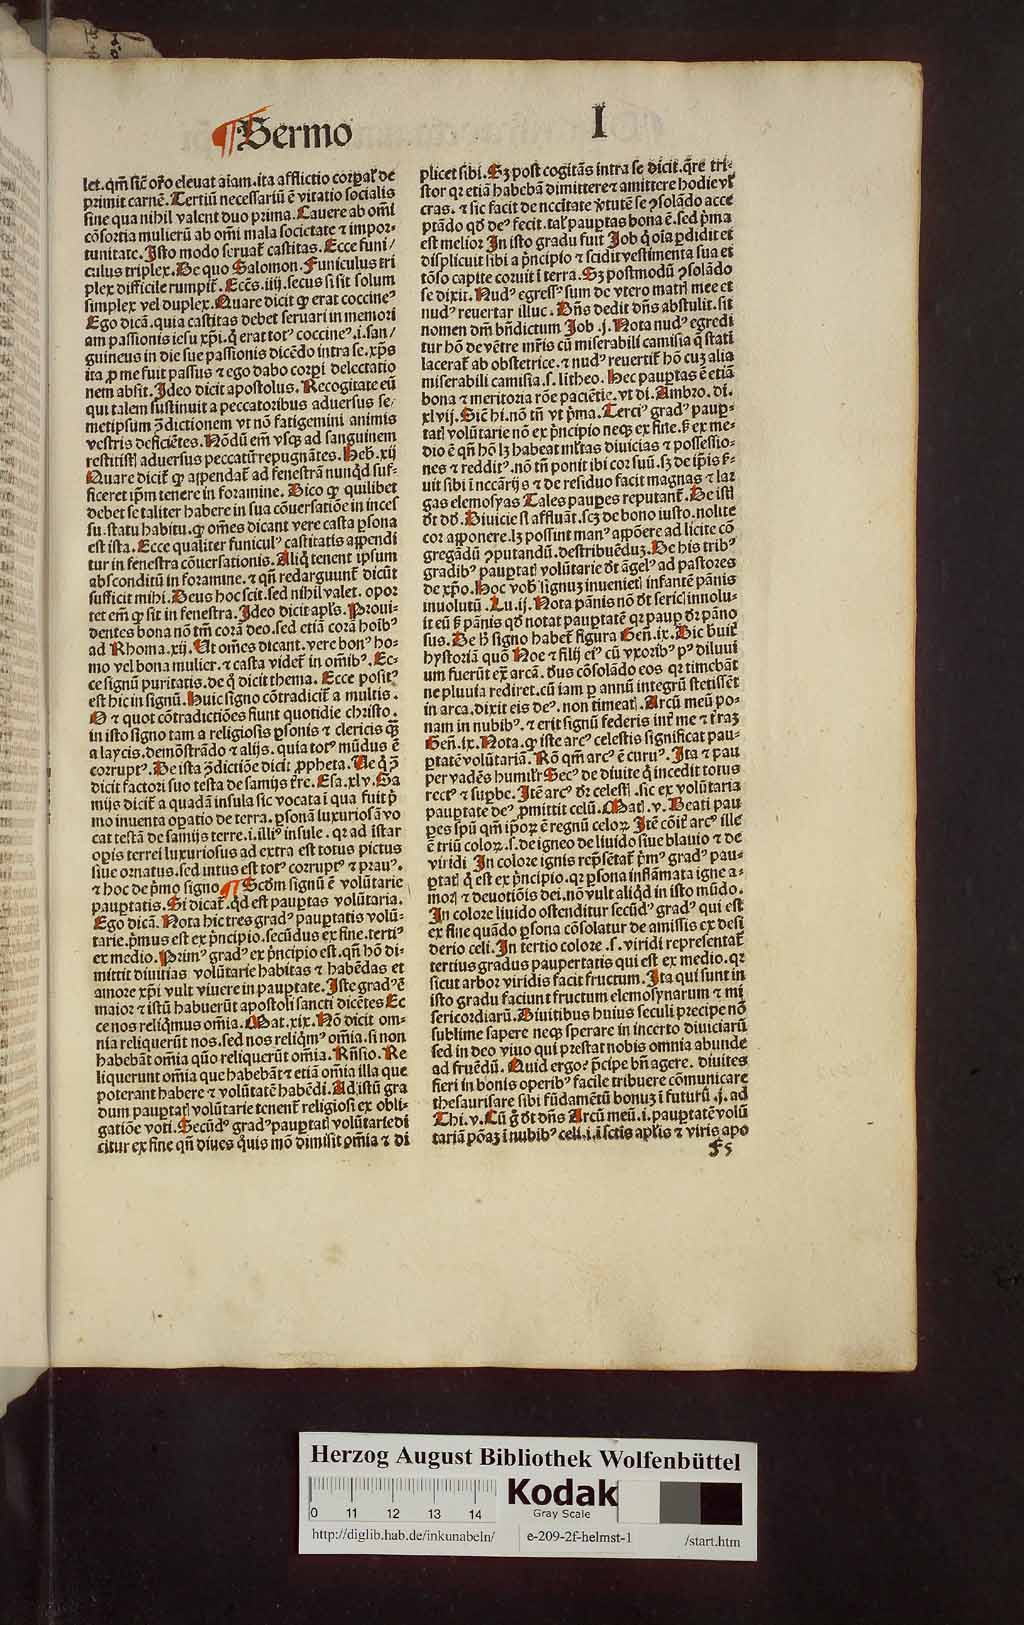 ¶Sermo I
let. qm̄ sic̄ or̄o eleuat aīam. ita afflictio corꝑal̕ de
primit carnē. Tertiū necessariū ē vitatio socialis
sine qua nihil valent duo prima. Cauere ab om̄i
cōsortia mulierū ab om̄i mala societate ⁊ impor⸗
tunitate. Isto modo seruat᷑ castitas. Ecce funi/
culus triplex. De quo Salomon. Funiculus tri
plex difficile rumpit᷑. Ecc̄s. iiij. secus si sit solum
simplex vel duplex. Quare dicit ꝙ erat coccineꝰ
Ego dicā. quia castitas debet seruari in memori
am passionis iesu xp̄i. q̇ erat totꝰ coccineꝰ. i. san/
guineus in die sue passionis dicēdo intra se. xp̄s
ita ꝓ me fuit passus ⁊ ego dabo corpi delectatio
nem absit. Ideo dicit apostolus. Recogitate eū
qui talem sustinuit a peccatoribus aduersus se⸗
metipsum ↄ̄dictionem vt nō fatigemini animis
vestris deficiētes. Nōdū em̄ vsqꝫ ad sanguinem
restitistꝭ aduersus peccatū repugnātes. Heb̄. xij
Quare dicit᷑ ꝙ appendat᷑ ad fenestrā nunq̇d suf⸗
ficeret ip̄m tenere in foramine. Dico ꝙ quilibet
debet se taliter habere in sua cōuersatiōe in inces
su. statu habitu. ꝙ om̄es dicant vere casta ꝑsona
est ista. Ecce qualiter funiculꝰ castitatis appendi
tur in fenestra cōuersationis. Aliq̇ tenent ipsum
absconditū in foramine. ⁊ qn̄ redarguunt᷑ dicūt
sufficit mihi. Deus hoc scit. sed nihil valet. opor
tet em̄ ꝙ sit in fenestra. Ideo dicit apl̄s. Proui⸗
dentes bona nō tm̄ corā deo. sed etiā corā hoībꝰ
ad Rhoma. xij. Ut om̄es dicant. vere bonꝰ ho⸗
mo vel bona mulier. ⁊ casta videt᷑ in om̄ibꝰ. Ec⸗
ce signū puritatis. de q̇ dicit thema. Ecce positꝰ
est hic in signū. Huic signo cōtradicit᷑ a multis.
O ⁊ quot cōtradictiōes fiunt quotidie christo.
in isto signo tam a religiosis ꝑsonis ⁊ clericis qꝫ
a laycis. demōstrādo ⁊ alijs. quia totꝰ mūdus ē
corruptꝰ. De ista ↄ̄dictiōe dicit ꝓpheta. Ue q̇ ↄ̄
dicit factori suo testa de samijs tr̄re. Esa. xlv. Sa
mijs dicit᷑ a quadā insula sic vocata ī qua fuit p̄
mo inuenta oꝑatio de terra. ꝑsonā luxuriosā vo
cat testā de samijs terre. i. illiꝰ insule. qr ad istar
oꝑis terrei luxuriosus ad extra est totus pictus
siue ornatus. sed intus est totꝰ corruptꝰ ⁊ prauꝰ.
⁊ hoc de p̄mo signo ¶Scd̄m signū ē volūtarie
pauꝑtatis. Si dicat᷑. q̇d est pauꝑtas volūtaria.
Ego dicā. Nota hic tres gradꝰ pauꝑtatis volū⸗
tarie. p̄mus est ex p̄ncipio. secūdus ex fine. tertiꝰ
ex medio. Primꝰ gradꝰ ex p̄ncipio est. qn̄ hō di⸗
mittit diuitias volūtarie habitas ⁊ habēdas et
amore xp̄i vult viuere in pauꝑtate. Iste gradꝰ ē
maior ⁊ istū habuerūt apostoli sancti dicētes Ec
ce nos reliq̇mus om̄ia. Mat. xix. Nō dicit om⸗
nia reliquerūt nos. sed nos reliq̇mꝰ om̄ia. si non
habebāt om̄ia quō reliquerūt om̄ia. Rn̄sio. Re
liquerunt om̄ia que habebāt ⁊ etiā om̄ia illa que
poterant habere ⁊ volūtatē habēdi. Ad istū gra
dum pauꝑtatꝭ volūtarie tenent᷑ religiosi ex obli⸗
gatiōe voti. Secūdꝰ gradꝰ pauꝑtatꝭ volūtarie di
citur ex fine qn̄ diues q̇uis mō dimisit om̄ia ⁊ di
plicet sibi. Sꝫ post cogitās intra se dicit. qr̄e tri⸗
stor qr etiā habebā dimittere ⁊ amittere hodie vl̕
cras. ⁊ sic facit de nccītate v̕tutē se ↄsolādo acce
ptādo qd̕ deꝰ fecit. tal̕ pauꝑtas bona ē. sed p̄ma
est melior In isto gradu fuit Job q̇ oīa ꝑdidit et
displicuit sibi a p̄ncipio ⁊ scidit vestimenta sua et
tōso capite coruit ī terra. Sꝫ postmodū ↄsolādo
se dixit. Nudꝰ egressꝰ sum de vtero matrꝭ mee et
nudꝰ reuertar illuc. Dn̄s dedit dn̄s abstulit. sit
nomen dn̄i bn̄dictum Job. j. Nota nudꝰ egredi
tur hō de vētre mr̄is cū miserabili camisia q̇ stati
lacerat᷑ ab obstetrice. ⁊ nudꝰ reuertit᷑ hō cuꝫ alia
miserabili camisia. s. litheo. Hec pauꝑtas ē etiā
bona ⁊ meritoria rōe paciētie. vt di. Ambro. di.
xlvij. Sic̄ hi. nō tn̄ vt p̄ma. Terciꝰ gradꝰ pauꝑ⸗
tatꝭ volūtarie nō ex p̄ncipio neqꝫ ex fine. ẜ ex me⸗
dio ē qn̄ hō lꝫ habeat ml̕tas diuicias ⁊ possessio⸗
nes ⁊ redditꝰ. nō tn̄ ponit ibi cor suū. sꝫ de ip̄is ẜ⸗
uit sibi ī nccārijs ⁊ de residuo facit magnas ⁊ lar
gas elemosyas Tales pauꝑes reputant᷑. De istꝭ
dt̄ dd̕. Diuicie si affluāt. scꝫ de bono iusto. nolite
cor apponere. lꝫ possint manꝰ appōere ad licite cō
gregādū ↄputandū. destribuēduꝫ. De his tribꝰ
gradibꝰ pauꝑtatꝭ volūtarie dt̄ āgelꝰ ad pastores
de xp̄o. Hoc vob̕ signuꝫ inuenietꝭ infantē pānis
inuolutū. Lu. ij. Nota pānis nō dt̄ sericꝭ innolu⸗
it eū ẜ pānis qd̕ notat pauꝑtatē qr pauꝑ dr̄ pāno
sus. De h̕ signo habet᷑ figura Gen̄. ix. Dic breuit᷑
hystoriā quō Noe ⁊ filij eiꝰ cū vxoribꝰ pꝰ diluui
um fuerūt ex̄ arcā. d̕us cōsolādo eos qr timebāt
ne pluuia rediret. cū iam ꝑ annū integrū stetissēt
in arca. dixit eis deꝰ. non timeatꝭ. Arcū meū po⸗
nam in nubibꝰ. ⁊ erit signū federis int᷑ me ⁊ t᷑raꝫ
Gen̄. ix. Nota. ꝙ iste arcꝰ celestis significat pau⸗
ꝑtatē volūtariā. Rō qm̄ arcꝰ ē curuꝰ. Ita ⁊ pau
per vadēs humilr̕ Secꝰ de diuite q̇ incedit totus
rectꝰ ⁊ suꝑbe. Itē arcꝰ dr̄ celestꝭ. sic ex volūtaria
pauꝑtate deꝰ ꝓmittit celū. Mat̄. v. Beati pau
ꝑes spū qm̄ ip̄oꝝ ē regnū celoꝝ Itē cōit᷑ arcꝰ ille
ē triū coloꝝ. s. de igneo de liuido siue blauio ⁊ de
viridi. In colore ignis rep̄sētat᷑ p̄mꝰ gradꝰ pau⸗
ꝑtatꝭ q̇ est ex p̄ncipio. qr ꝑsona inflāmata igne a⸗
morꝭ ⁊ deuotiōis dei. nō vult aliq̇d in isto mūdo.
In colore liuido ostenditur secūdꝰ gradꝰ qui est
ex fine quādo ꝑsona cōsolatur de amissis ex desi
derio celi. In tertio colore. s. viridi representat᷑
tertius gradus paupertatis qui est ex medio. qr
sicut arbor viridis facit fructum. Ita qui sunt in
isto gradu faciunt fructum elemosynarum ⁊ mi
sericordiarū. Diuitibus huius seculi precipe nō
sublime sapere neqꝫ sperare in incerto diuiciarū
sed in deo viuo qui prestat nobis omnia abunde
ad fruēdū. Quid ergo? p̄cipe bn̄ agere. diuites
fieri in bonis operibꝰ facile tribuere cōmunicare
thesaurisare sibi fūdamētū bonuꝫ ī futurū. j. ad
Thi. v. Cū g̊ dt̄ dn̄s Arcū meū. i. pauꝑtatē volū
tariā pōaꝫ ī nubibꝰ celi. i. ī sctis apl̕is ⁊ viris apo
f5
Herzog August Bibliothek Wolfenbüttel
0 11 12 13 14
Kodak
Gray Scale
http://diglib.hab.de/inkunabeln/ e-209-2f-helmst-1 /start.htm